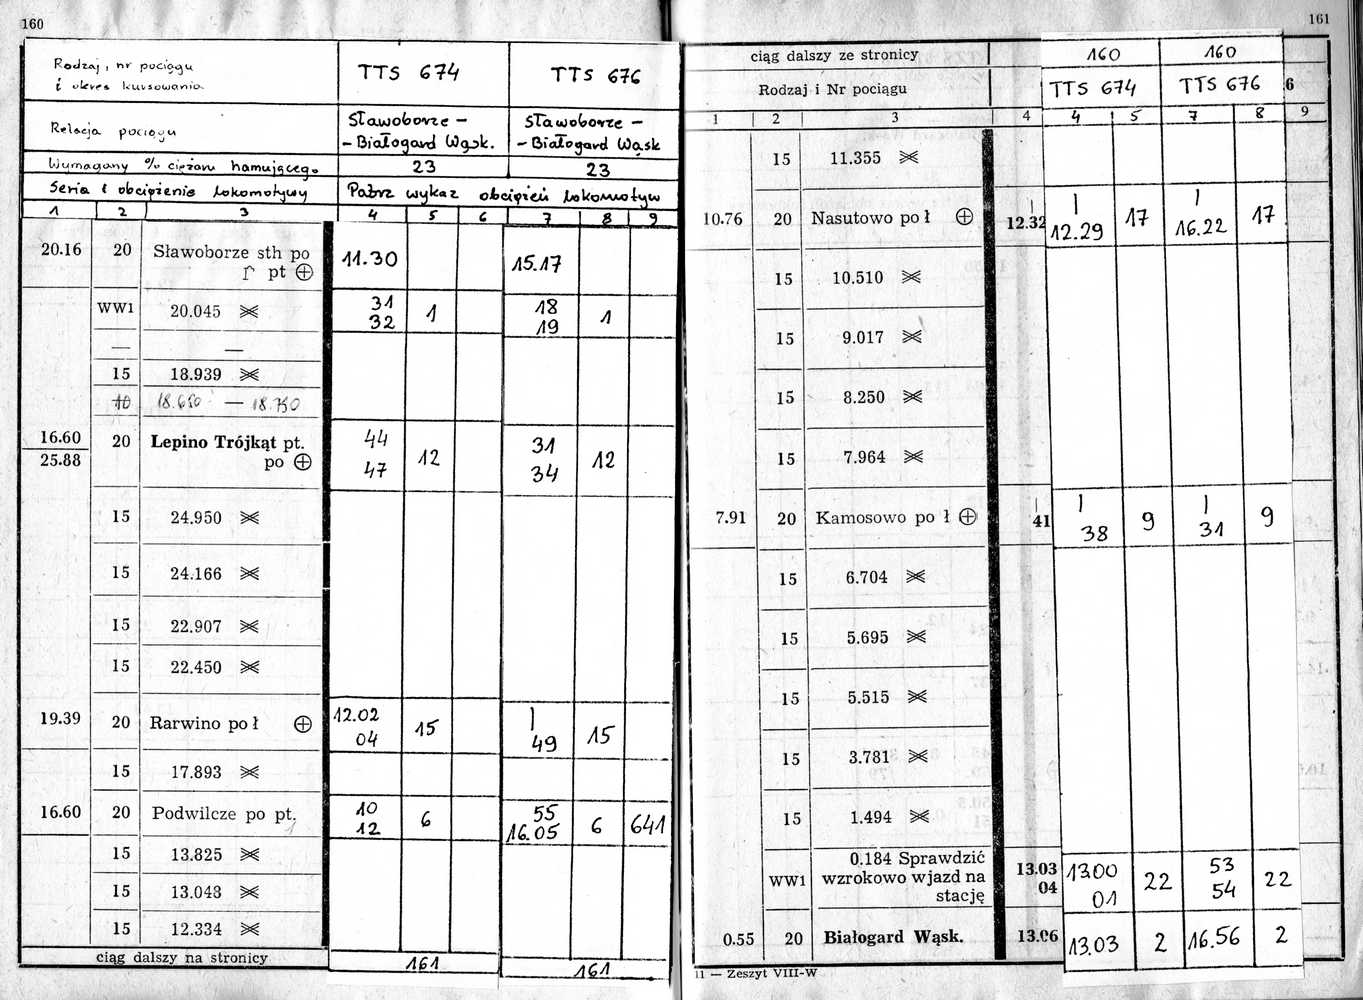 160
Rodzaj, nr pociągu
i okres kursowania
TTS 674
TTS 676
Relacja pociągu
Sławoborze –
– Białogard Wąsk.
Sławoborze –
– Białogard Wąsk
Wymagany % ciężaru hamującego
23
23
Seria i obciążenie lokomotywy
Patrz wykaz obciążeń lokomotyw
1 2 3 4 5 6 7 8 9
20.16 20 Sławoborze sth po
pt ⊕
11.30
15.17
WW1 20.045
31
32
1
18
19
1
— —
15 18.939
10 18.650 — 18.750
16.60
25.88
20 Lepino Trójkąt pt.
po ⊕
44
47
12
31
34
12
15 24.950
15 24.166
15 22.907
15 22.450
19.39 20 Rarwino po ł ⊕
12.02
04
15
|
49
15
15 17.893
16.60 20 Podwilcze po pt.
10
12
6
55
16.05
6
641
15 13.825
15 13.043
15 12.334
ciąg dalszy na stronicy
161
161
161
ciąg dalszy ze stronicy
160
160
Rodzaj i Nr pociągu
TTS 674
TTS 676
6
1 2 3 4 4 5 7 8 9
15 11.355
10.76 20 Nasutowo po ł ⊕
|
12.32
|
12.29
17
|
16.22
17
15 10.510
15 9.017
15 8.250
15 7.964
7.91 20 Kamosowo po ł ⊕
|
41
|
38
9
|
31
9
15 6.704
15 5.695
15 5.515
15 3.781
15 1.494
WW1
0.184 Sprawdzić
wzrokowo wjazd na
stację
13.03
04
13.00
01
22
53
54
22
0.55 20 Białogard Wąsk.
13.06
13.03
2
16.56
2
11 — Zeszyt VIII-W